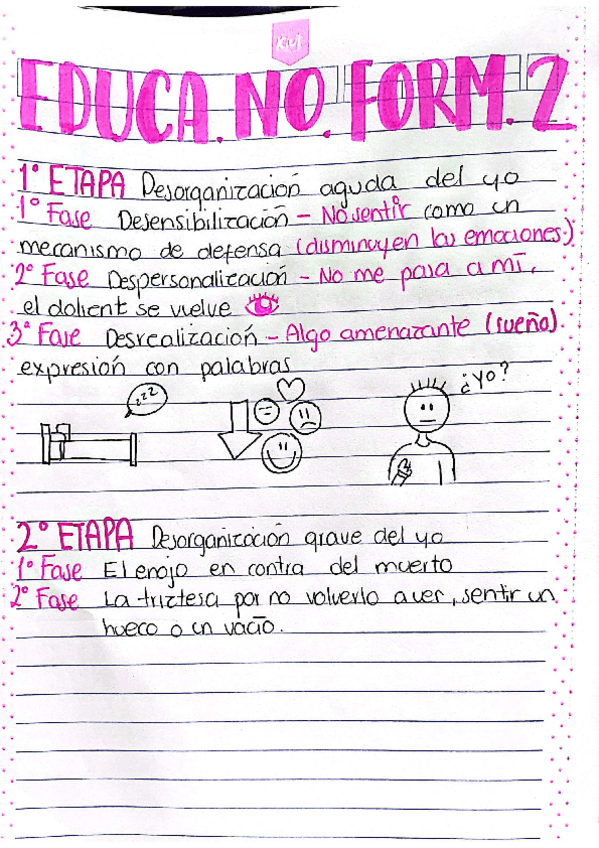 KUI
EDUCA.NO.FORM.2
1° ETAPA Desorganización aguda del yo
1° Fase Desensibilización - No sentir como un
mecanismo de defensa (disminuyen las emociones.)
2° Fase Despersonalización - No me pasa a mí,
el dolient se vuelve
3° Fase Desrealización - Algo amenazante (sueño).
expresión con palabras
zzz
¿yo?
2° ETAPA Desorganización grave del yo
1° Fase El enojo en contra del muerto
2° Fase La triztesa por no volverlo a ver, sentir un
hueco o un vacío.